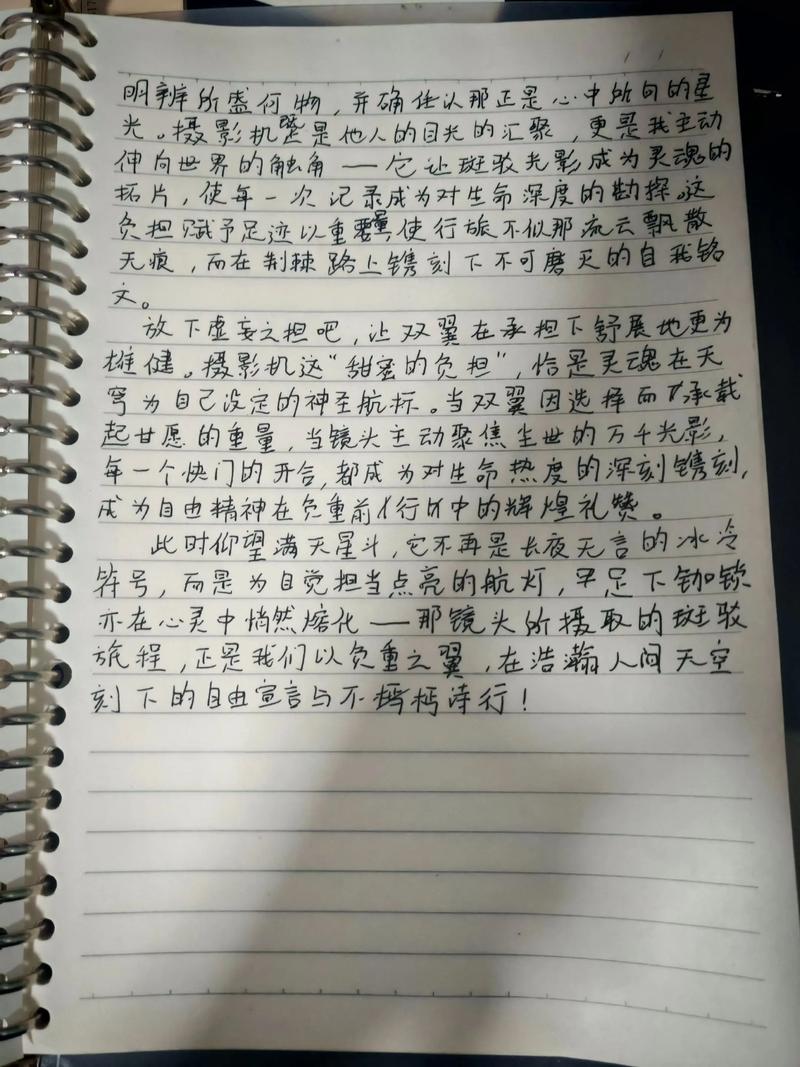 明辨所盛何物，并确任认那正是心中所向的星
光。摄影机既是他人的目光的汇聚，更是我主动
伸向世界的触角——它让斑驳光影成为灵魂的
拓片，使每一次记录成为对生命深度的勘探。这
负担赋予足迹以重量，使行旅不似那流云飘散
无痕，而在荆棘路上镌刻下不可磨灭的自我铭
文。
放下虚妄之担吧，让双翼在承担下舒展地更为
雄健。摄影机这“甜蜜的负担”，恰是灵魂在天
穹为自己设定的神圣航标。当双翼因选择而承载
起甘愿的重量，当镜头主动聚焦尘世的万千光影，
每一个快门的开合，都成为对生命热度的深刻镌刻，
成为自由精神在负重前行中的辉煌礼赞。
此时仰望满天星斗，它不再是长夜无言的冰冷
符号，而是为自觉担当点亮的航灯，足下枷锁
亦在心灵中悄然熔化——那镜头所摄取的斑驳
旅程，正是我们以负重之翼，在浩瀚人间天空
刻下的自由宣言与不朽诗行！